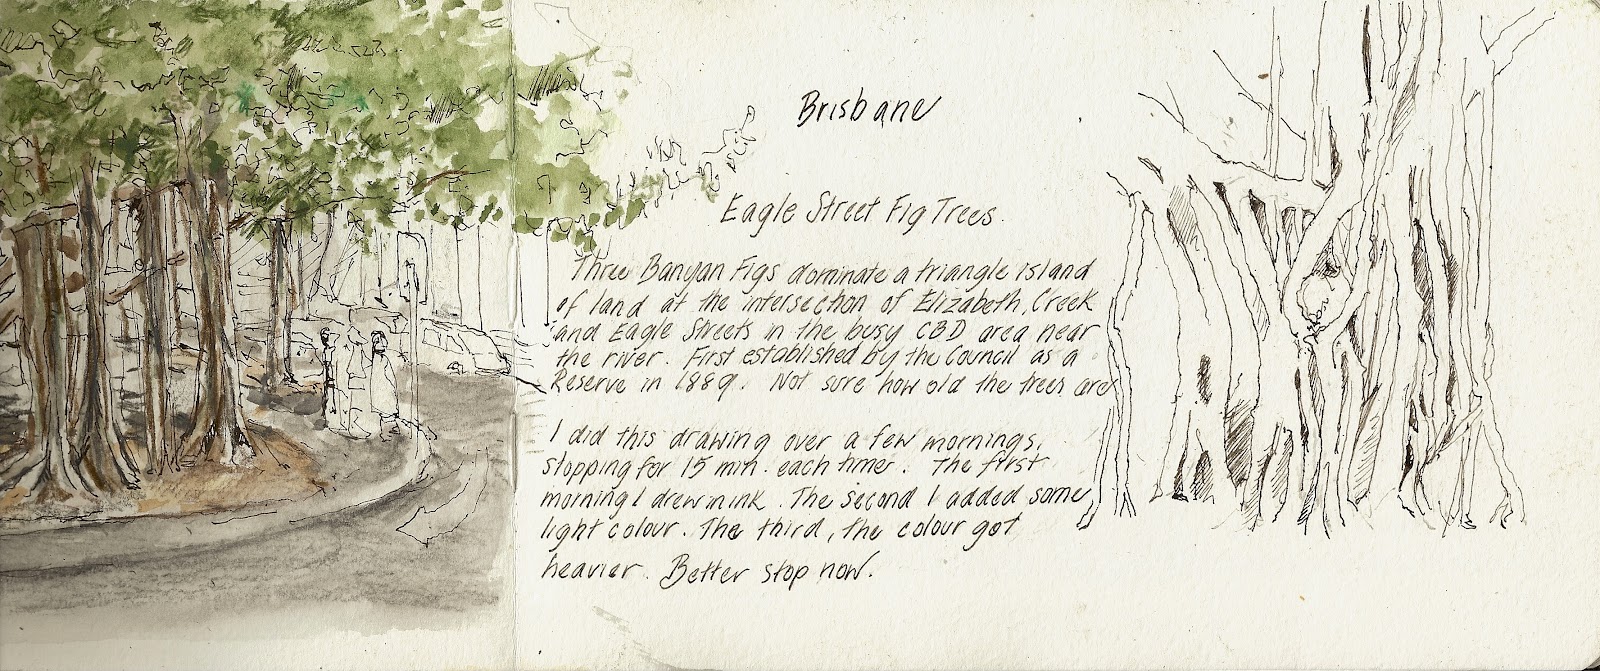 Brisbane
Eagle Street Fig Trees.
Three Banyan Figs dominate a triangle island
of land at the intersection of Elizabeth, Creek
and Eagle Streets in the busy CBD area near
the river. First established by the Council as a
Reserve in 1889. Not sure how old the trees are
I did this drawing over a few mornings,
stopping for 15 min. each time. The first
morning I drew in ink. The second I added some
light colour. The third, the colour got
heavier. Better stop now.